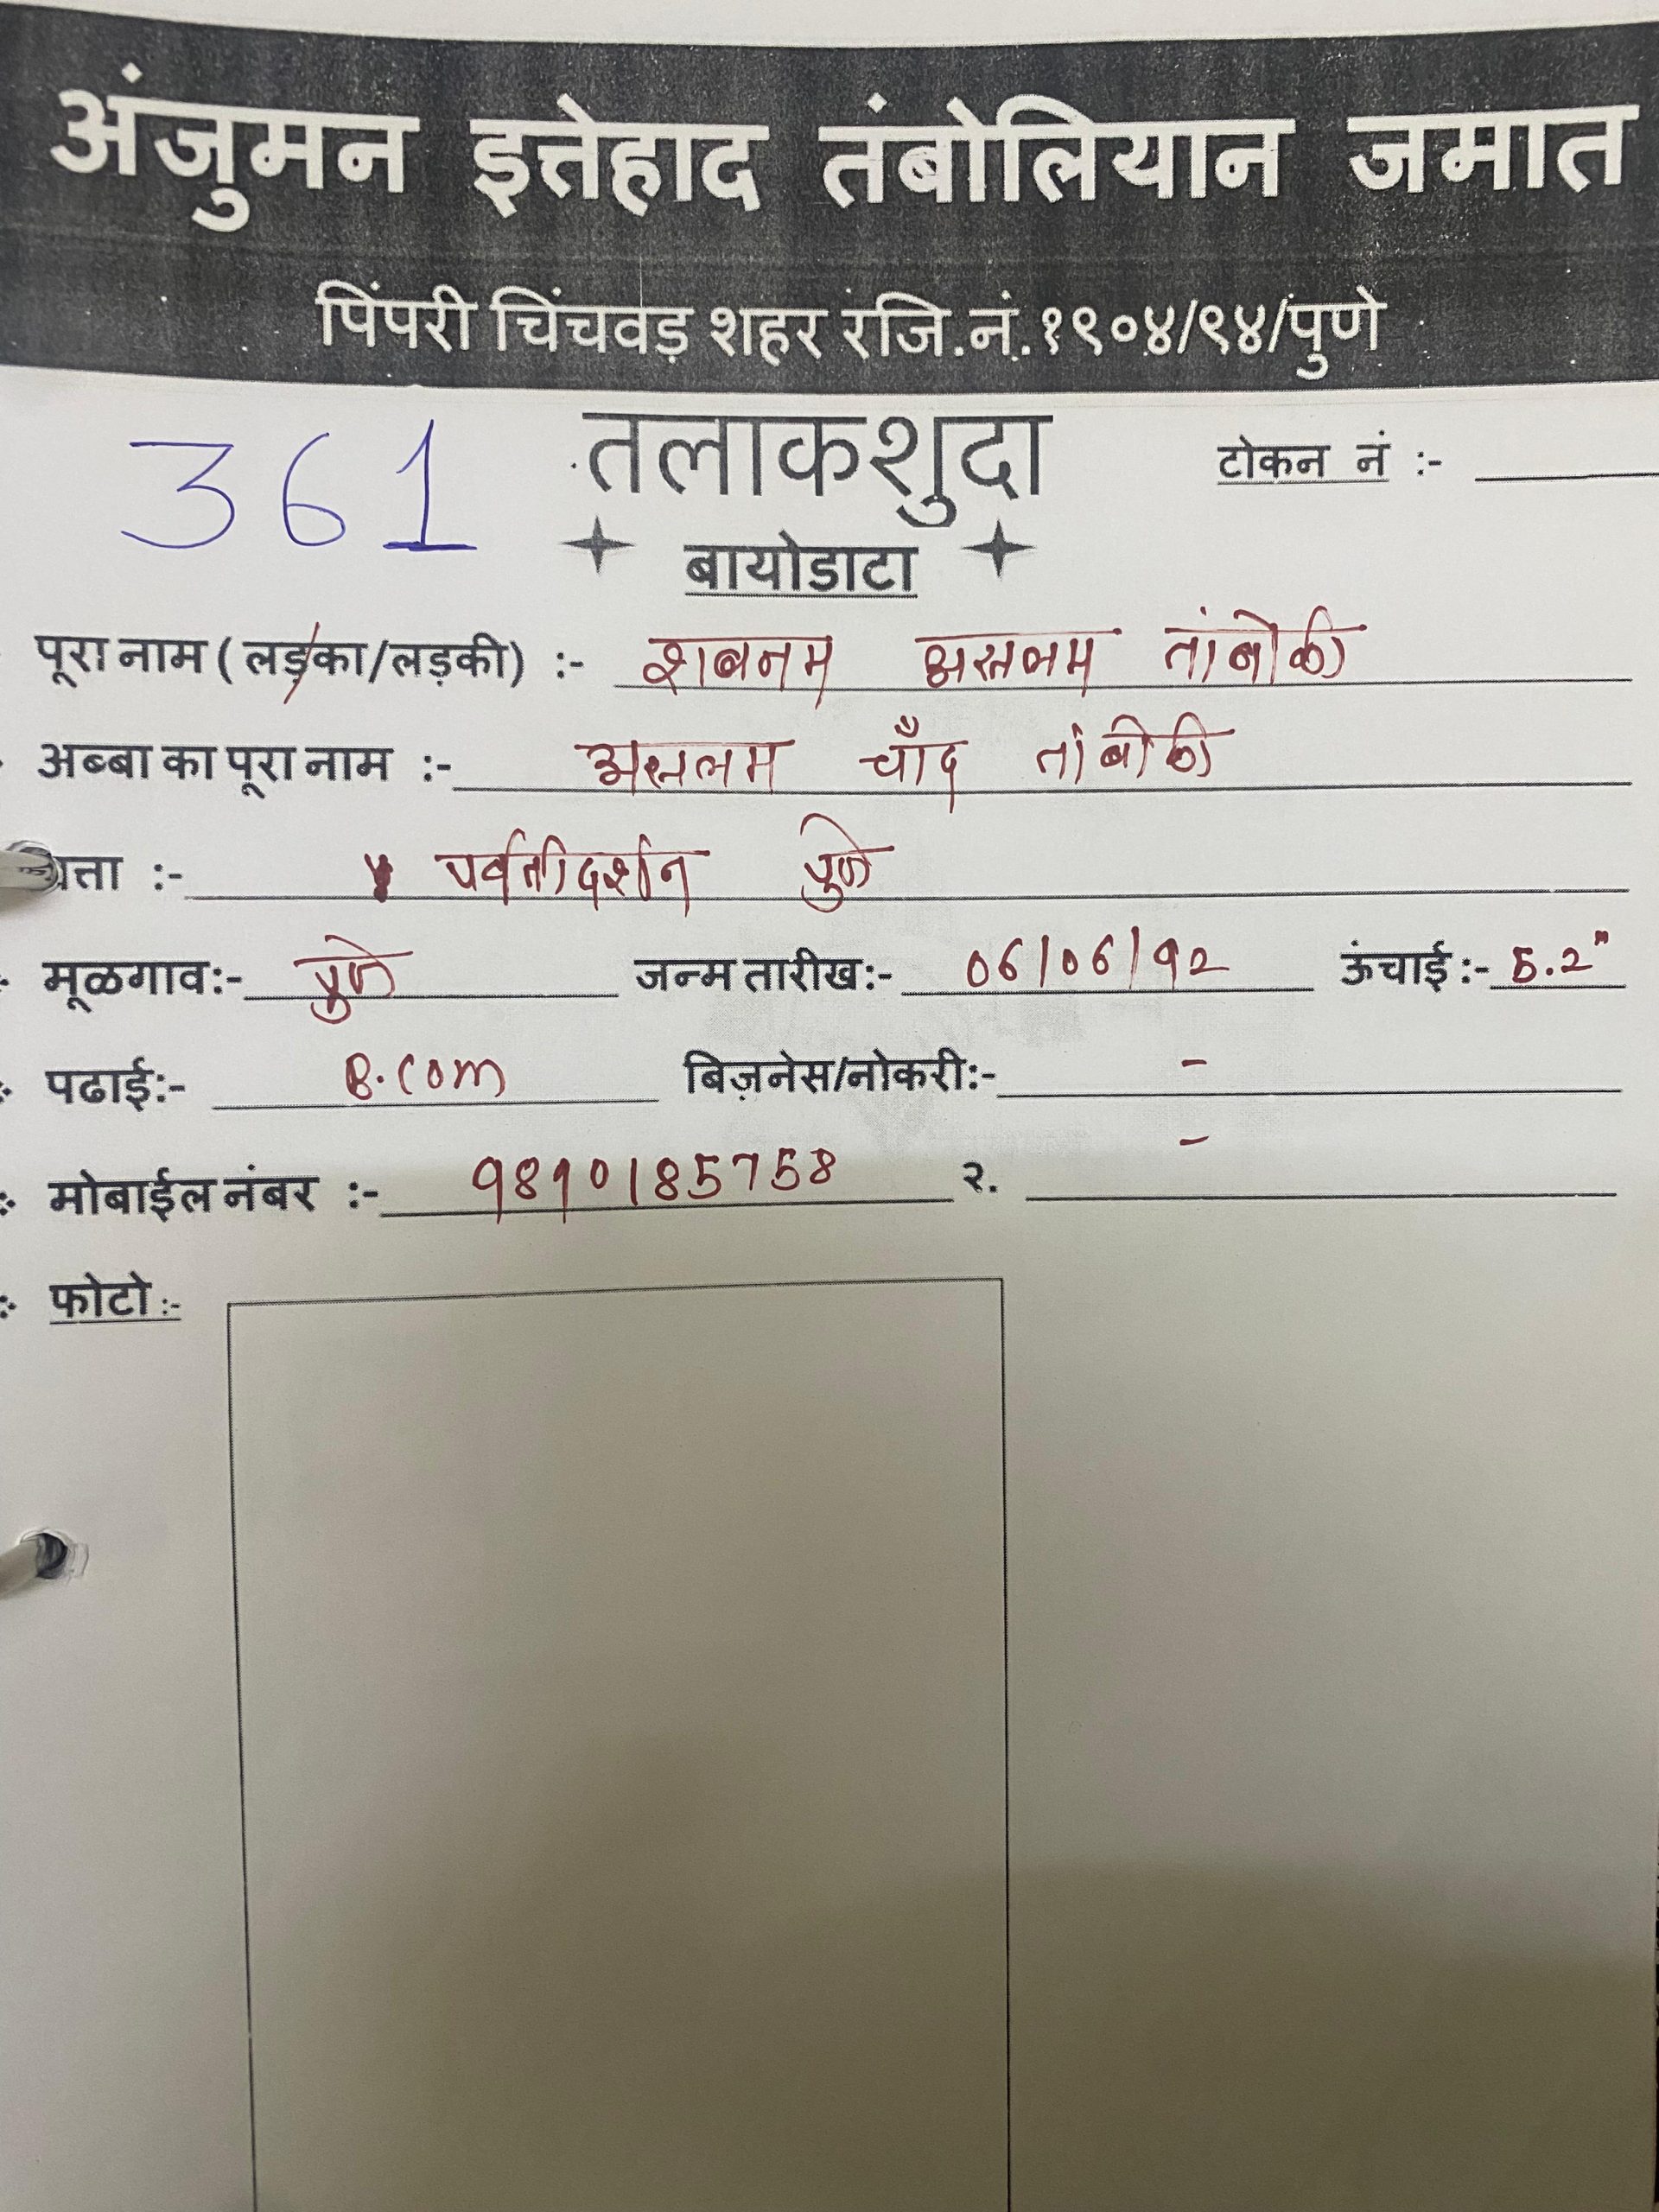 अंजुमन इत्तेहाद तंबोलियान जमात
पिंपरी चिंचवड़ शहर रजि.नं.१९०४/९४/पुणे
361 तलाकशुदा टोकन नं :-
बायोडाटा
पूरा नाम ( लड़का/लड़की) :- शबनम असलम तांबोळी
अब्बा का पूरा नाम :- असलम चाँद तांबोळी
पत्ता :- पर्वतीदर्शन पुणे
मूळगाव:- पुणे जन्म तारीख:- 06/06/92 ऊंचाई :- 5.2"
पढाई:- B.Com बिज़नेस/नोकरी:- -
मोबाईल नंबर :- 9890185758 २. -
फोटो :-